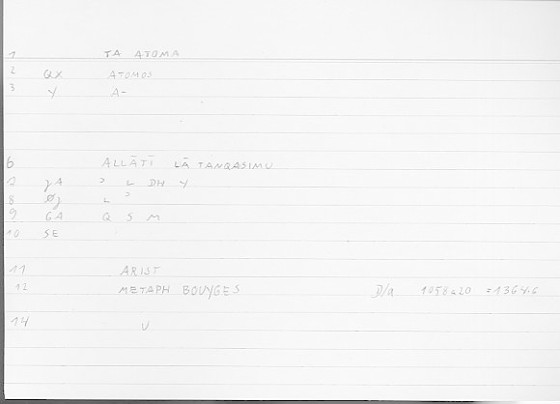 1 TA ATOMA
2 QX ATOMOS
3 Y A-
6 ALLĀTĪ LĀ TANQASIMU
7 JA ɔ L DH Y
8 ØJ L ɔ
9 GA Q S M
10 SE
11 ARIST
12 METAPH BOUYGES D/a 1058a20 =1364.6
14 U